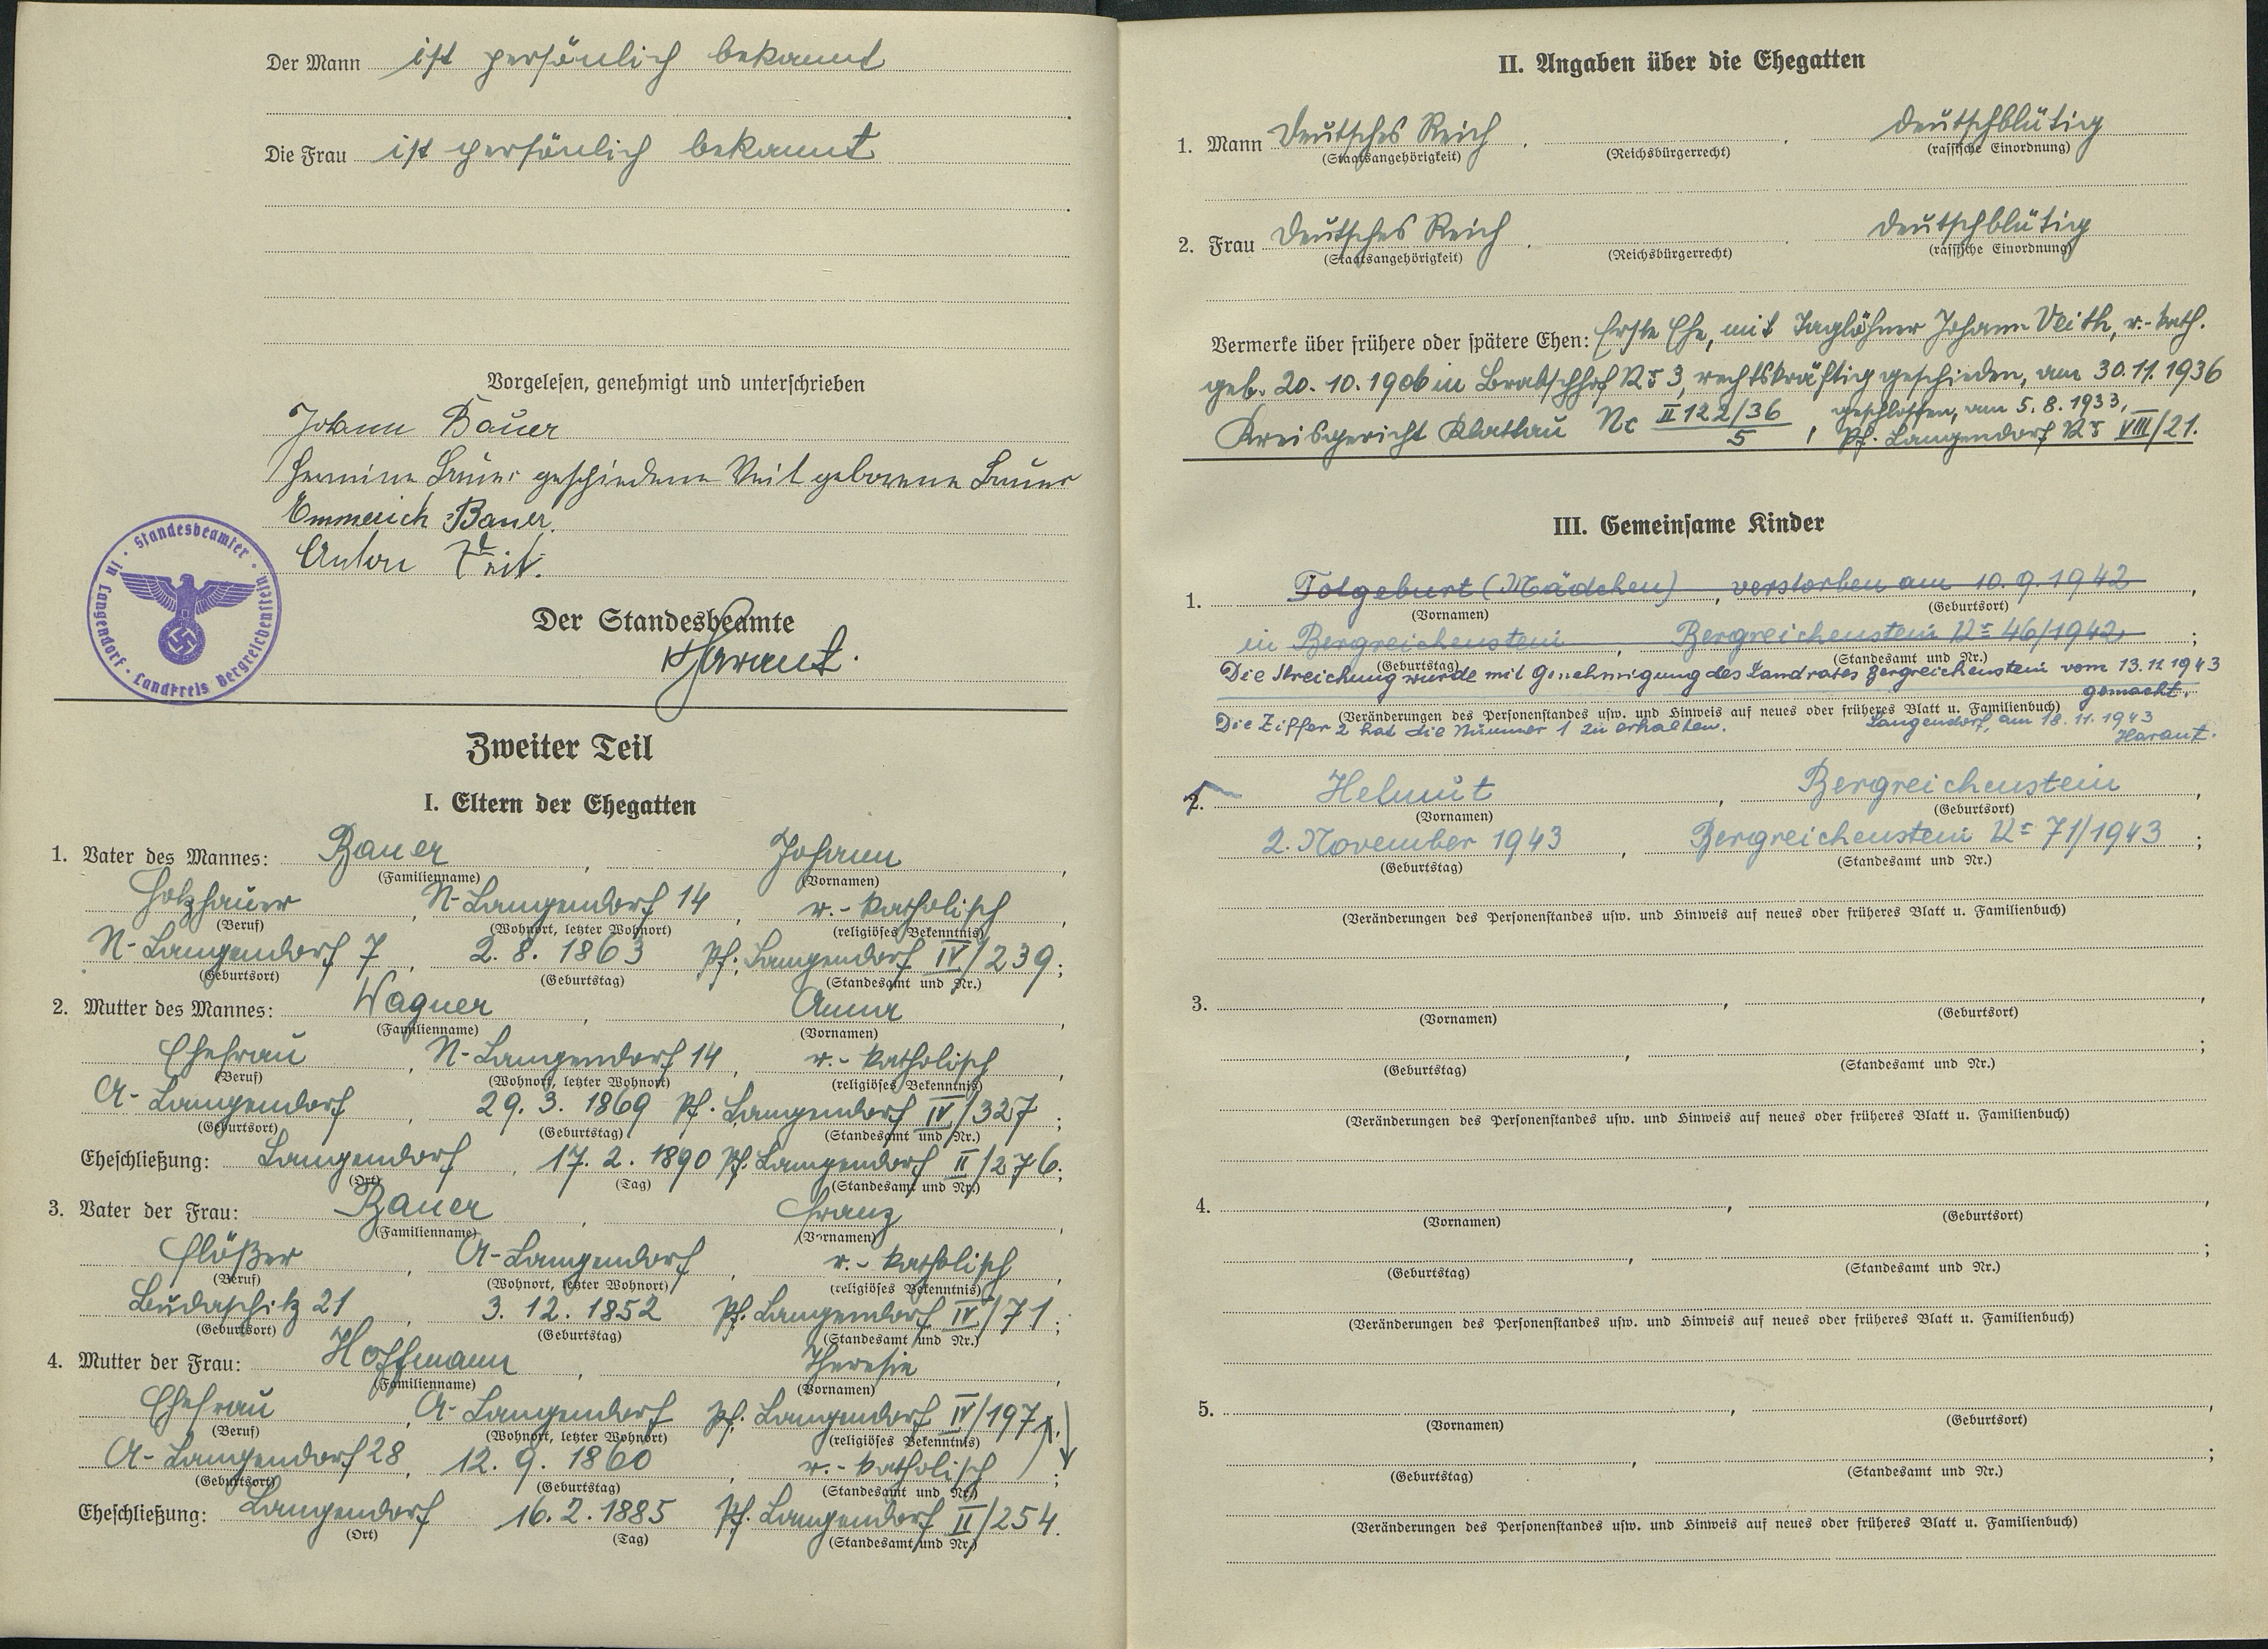 Der Mann ist persönlich bekannt
Die Frau ist persönlich bekannt
Vorgelesen, genehmigt und unterschrieben
Johann Bauer
Hermine Bauer geschiedene Veit geborene Bauer
Emmerich Bauer.
Anton Veit.
Standesbeamter in Langendorf · Landkreis Bergreichenstein ·
Der Standesbeamte
Harant.
Zweiter Teil
I. Eltern der Ehegatten
1. Vater des Mannes: Bauer, Johann,
(Familienname) (Vornamen)
Holzhauer, N-Langendorf 14, r.-katholisch,
(Beruf) (Wohnort, letzter Wohnort) (religiöses Bekenntnis)
N-Langendorf 7, 2.8.1863 Pf. Langendorf IV/239;
(Geburtsort) (Geburtstag) (Standesamt und Nr.)
2. Mutter des Mannes: Wagner, Anna,
(Familienname) (Vornamen)
Ehefrau, N-Langendorf 14, r.-katholisch,
(Beruf) (Wohnort, letzter Wohnort) (religiöses Bekenntnis)
A-Langendorf, 29.3.1869 Pf. Langendorf IV/327;
(Geburtsort) (Geburtstag) (Standesamt und Nr.)
Eheschließung: Langendorf, 17.2.1890 Pf. Langendorf II/276.
(Ort) (Tag) (Standesamt und Nr.)
3. Vater der Frau: Bauer, Franz,
(Familienname) (Vornamen)
Flößer, A-Langendorf, r.-katholisch,
(Beruf) (Wohnort, letzter Wohnort) (religiöses Bekenntnis)
Budaschitz 21, 3.12.1852 Pf. Langendorf IV/71;
(Geburtsort) (Geburtstag) (Standesamt und Nr.)
4. Mutter der Frau: Hoffmann, Theresia,
(Familienname) (Vornamen)
Ehefrau, A-Langendorf Pf. Langendorf IV/197
(Beruf) (Wohnort, letzter Wohnort) (religiöses Bekenntnis)
A-Langendorf 28, 12.9.1860, r.-katholisch;
(Geburtsort) (Geburtstag) (Standesamt und Nr.)
Eheschließung: Langendorf 16.2.1885 Pf. Langendorf II/254.
(Ort) (Tag) (Standesamt und Nr.)
II. Angaben über die Ehegatten
1. Mann Deutsches Reich, deutschblütig
(Staatsangehörigkeit) (Reichsbürgerrecht) (rassische Einordnung)
2. Frau Deutsches Reich, deutschblütig
(Staatsangehörigkeit) (Reichsbürgerrecht) (rassische Einordnung)
Vermerke über frühere oder spätere Ehen: Erste Ehe, mit Taglöhner Johann Veith, r.-kath.
geb. 20.10.1906 in Nr 3, rechtskräftig geschieden, am 30.11.1936
Kreisgericht Klattau Nc II 122/36/5, geschlossen, am 5.8.1933,
Pf. Langendorf Nr VIII/21.
III. Gemeinsame Kinder
1. Totgeburt (Mädchen), verstorben am 10.9.1942,
(Vornamen) (Geburtsort)
in Bergreichenstein, Bergreichenstein Nr 46/1942;
(Geburtstag) (Standesamt und Nr.)
Die Streichung wurde mit Genehmigung des Landrates Bergreichenstein vom 13.11.1943
gemacht.
(Veränderungen des Personenstandes usw. und Hinweis auf neues oder früheres Blatt u. Familienbuch)
Die Ziffer 2 hat die Nummer 1 zu erhalten. Langendorf, am 18.11.1943
Harant.
2. Helmut, Bergreichenstein,
(Vornamen) (Geburtsort)
2. November 1943, Bergreichenstein Nr 71/1943;
(Geburtstag) (Standesamt und Nr.)
(Veränderungen des Personenstandes usw. und Hinweis auf neues oder früheres Blatt u. Familienbuch)
3.
(Vornamen) (Geburtsort)
(Geburtstag) (Standesamt und Nr.)
(Veränderungen des Personenstandes usw. und Hinweis auf neues oder früheres Blatt u. Familienbuch)
4.
(Vornamen) (Geburtsort)
(Geburtstag) (Standesamt und Nr.)
(Veränderungen des Personenstandes usw. und Hinweis auf neues oder früheres Blatt u. Familienbuch)
5.
(Vornamen) (Geburtsort)
(Geburtstag) (Standesamt und Nr.)
(Veränderungen des Personenstandes usw. und Hinweis auf neues oder früheres Blatt u. Familienbuch)